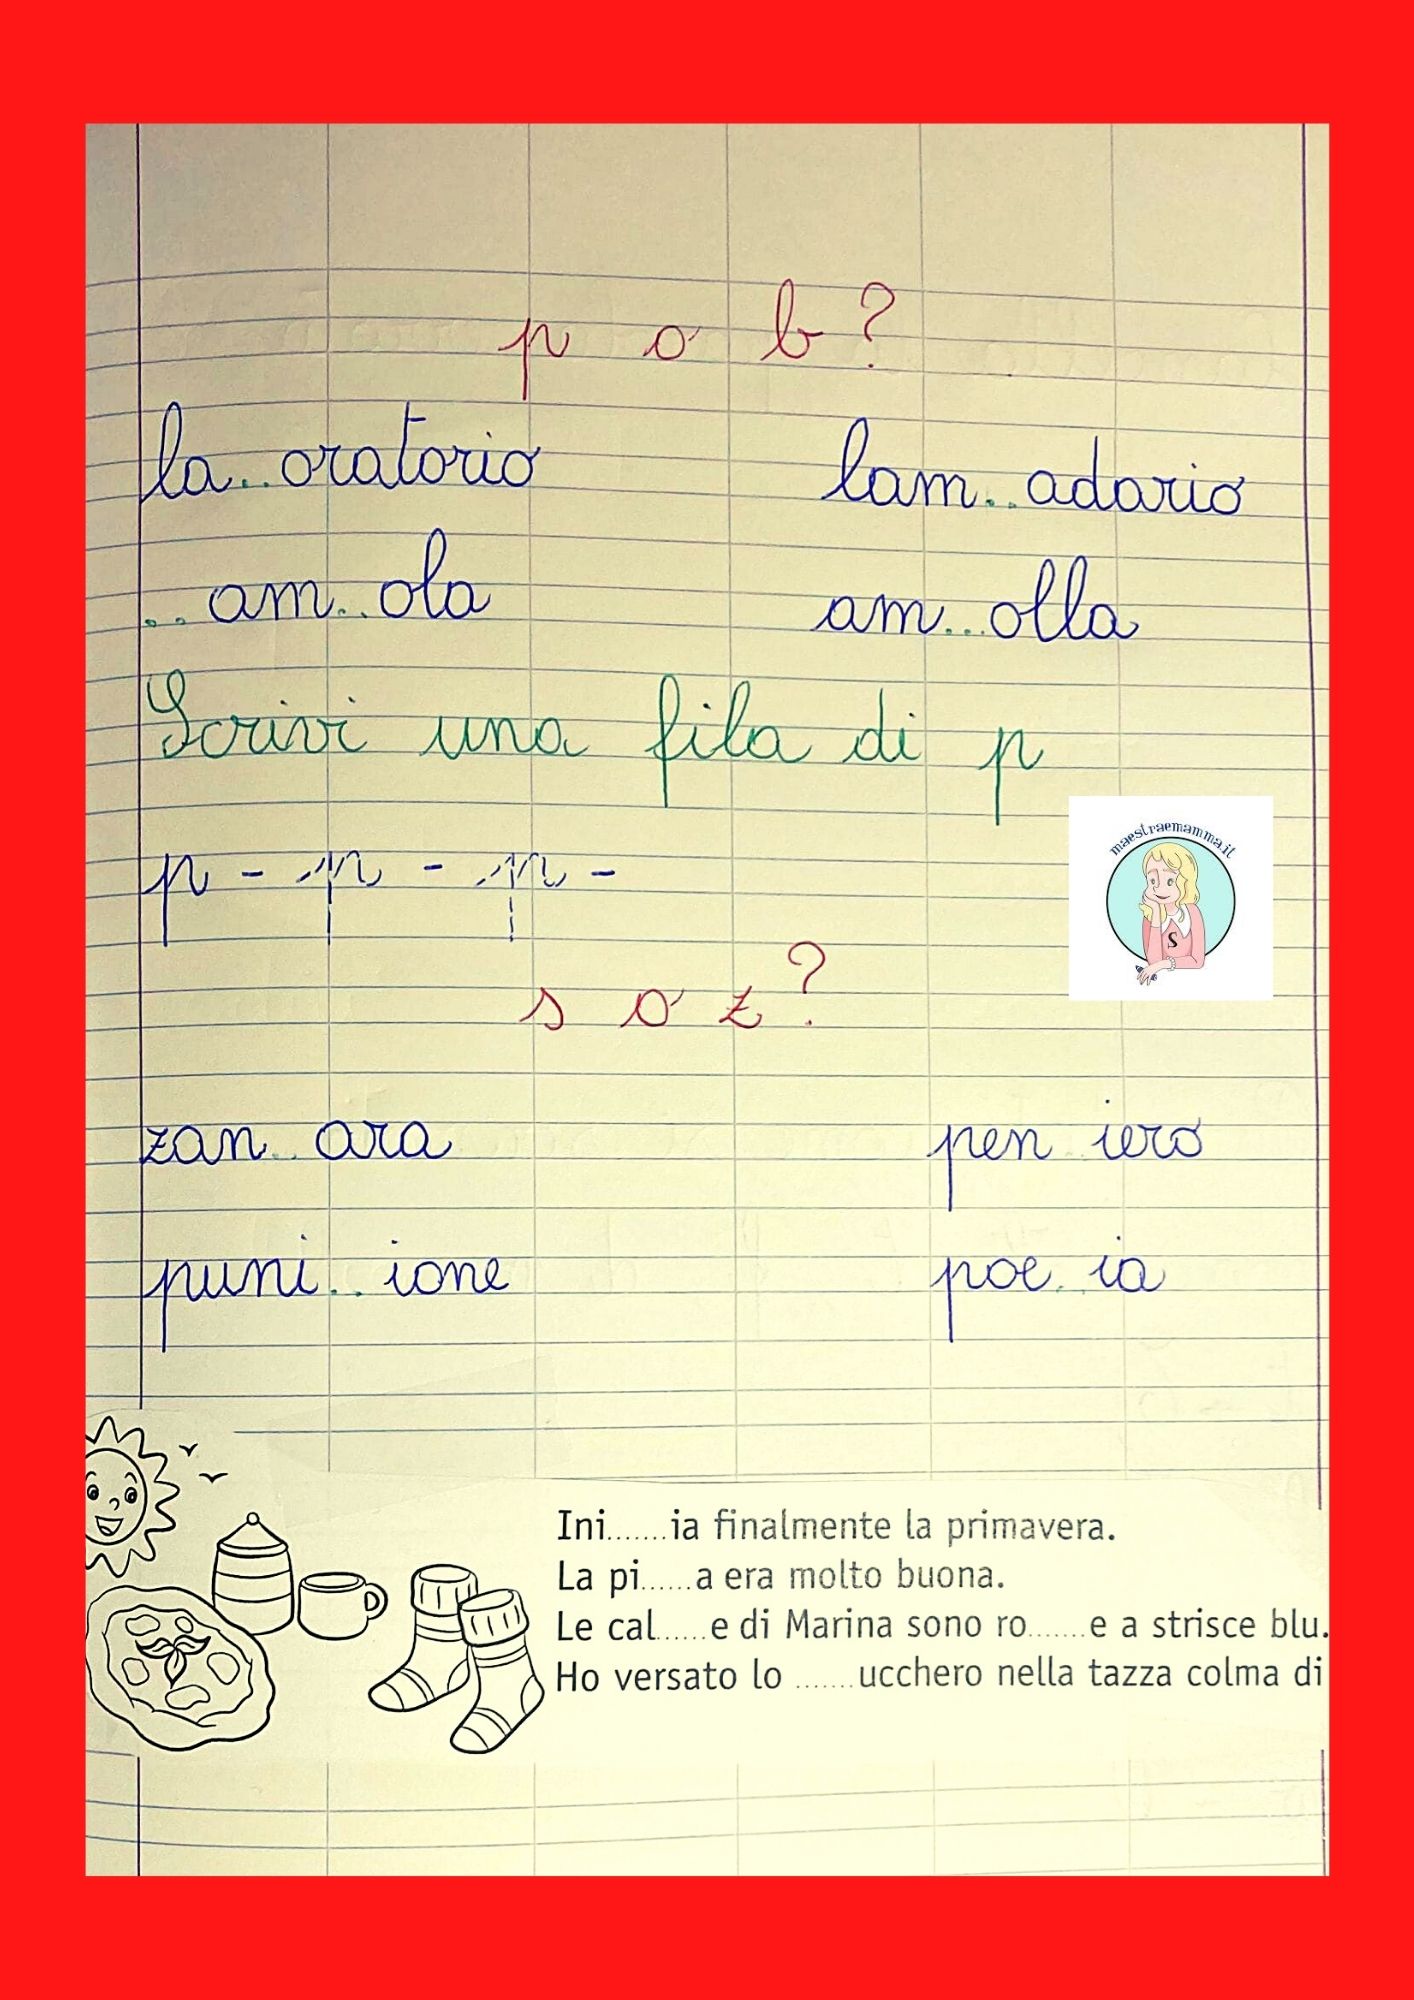 p o b?
la..oratorio lam..adario
..am..ola am...olla
Scrivi una fila di p
maestraemamma.it
S
p - p - p -
s o z?
zan..ara pen..iero
puni..ione poe..ia
Ini.......ia finalmente la primavera.
La pi......a era molto buona.
Le cal......e di Marina sono ro.......e a strisce blu.
Ho versato lo .......ucchero nella tazza colma di